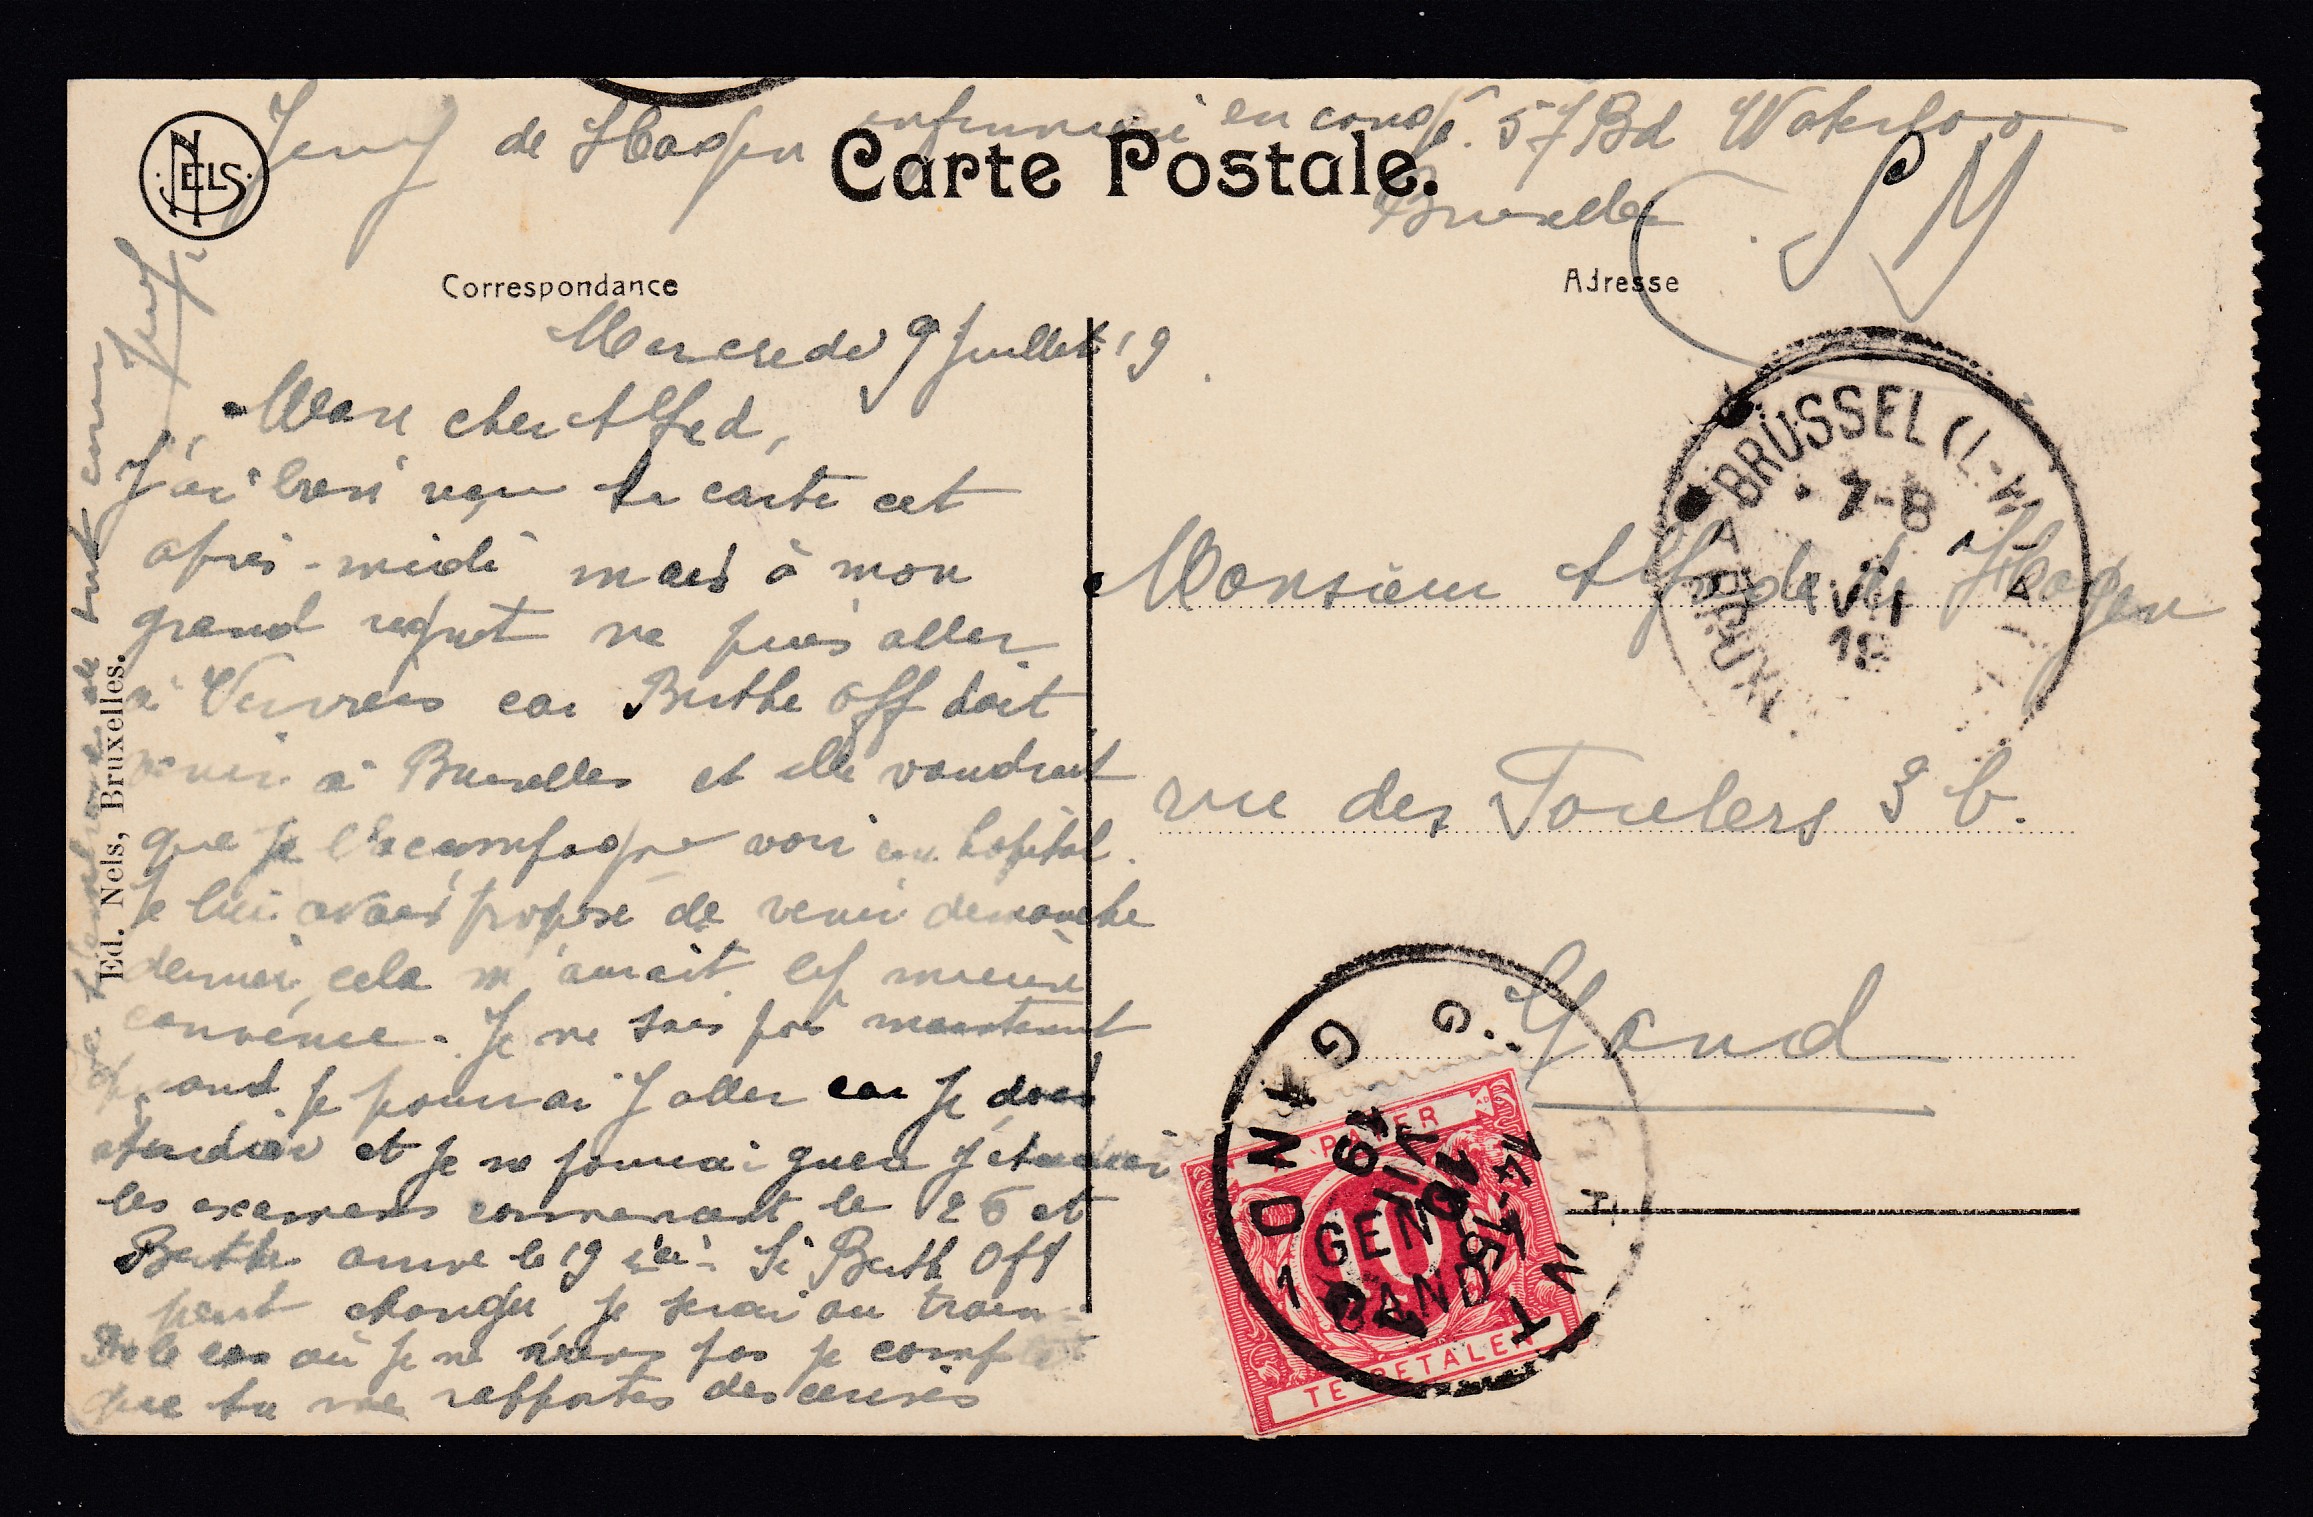 NELS
Jenny de Haspen infirmière en congé. 57 Bd Waterloo
Bruxelles
SM
Carte Postale.
Correspondance
Adresse
Mercredi 9 Juillet 19
Mon cher Alfred,
J'ai bien reçu ta carte cet
après-midi mais à mon
grand regret ne puis aller
à Verviers car Berthe Off doit
venir à Bruxelles et elle voudrait
que je l'accompagne voir un hôpital.
Je lui avais proposé de venir dimanche
dernier, cela m'aurait mieux
convenue. Je ne sais pas maintenant
quand je pourrai y aller car je dois
étudier et je ne pourrai guère y étudier
les examens commencent le 26 et
Berthe arrive le 19 ici. Si Berthe Off
peut changer, je serai au train
Ds le cas où je ne viens pas je compte
que tu me rapportes des cerises
de tout cœur
Jenny
Ed. Nels, Bruxelles.
Monsieur Alfred de Haspen
rue des Foulons 3 b.
Gand
BRUSSEL (L-W)
7-8
VII
19
BRUX
GAND
GENT
14-15
10
VII
19
GENT
GAND
A PAYER
10
TE BETALEN